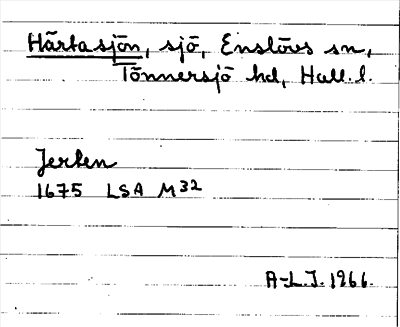 Härtasjön, sjö, Enslövs sn,
Tönnersjö hd, Hall. l.
Jerten
1675 LSA M32
A-L.J. 1966.